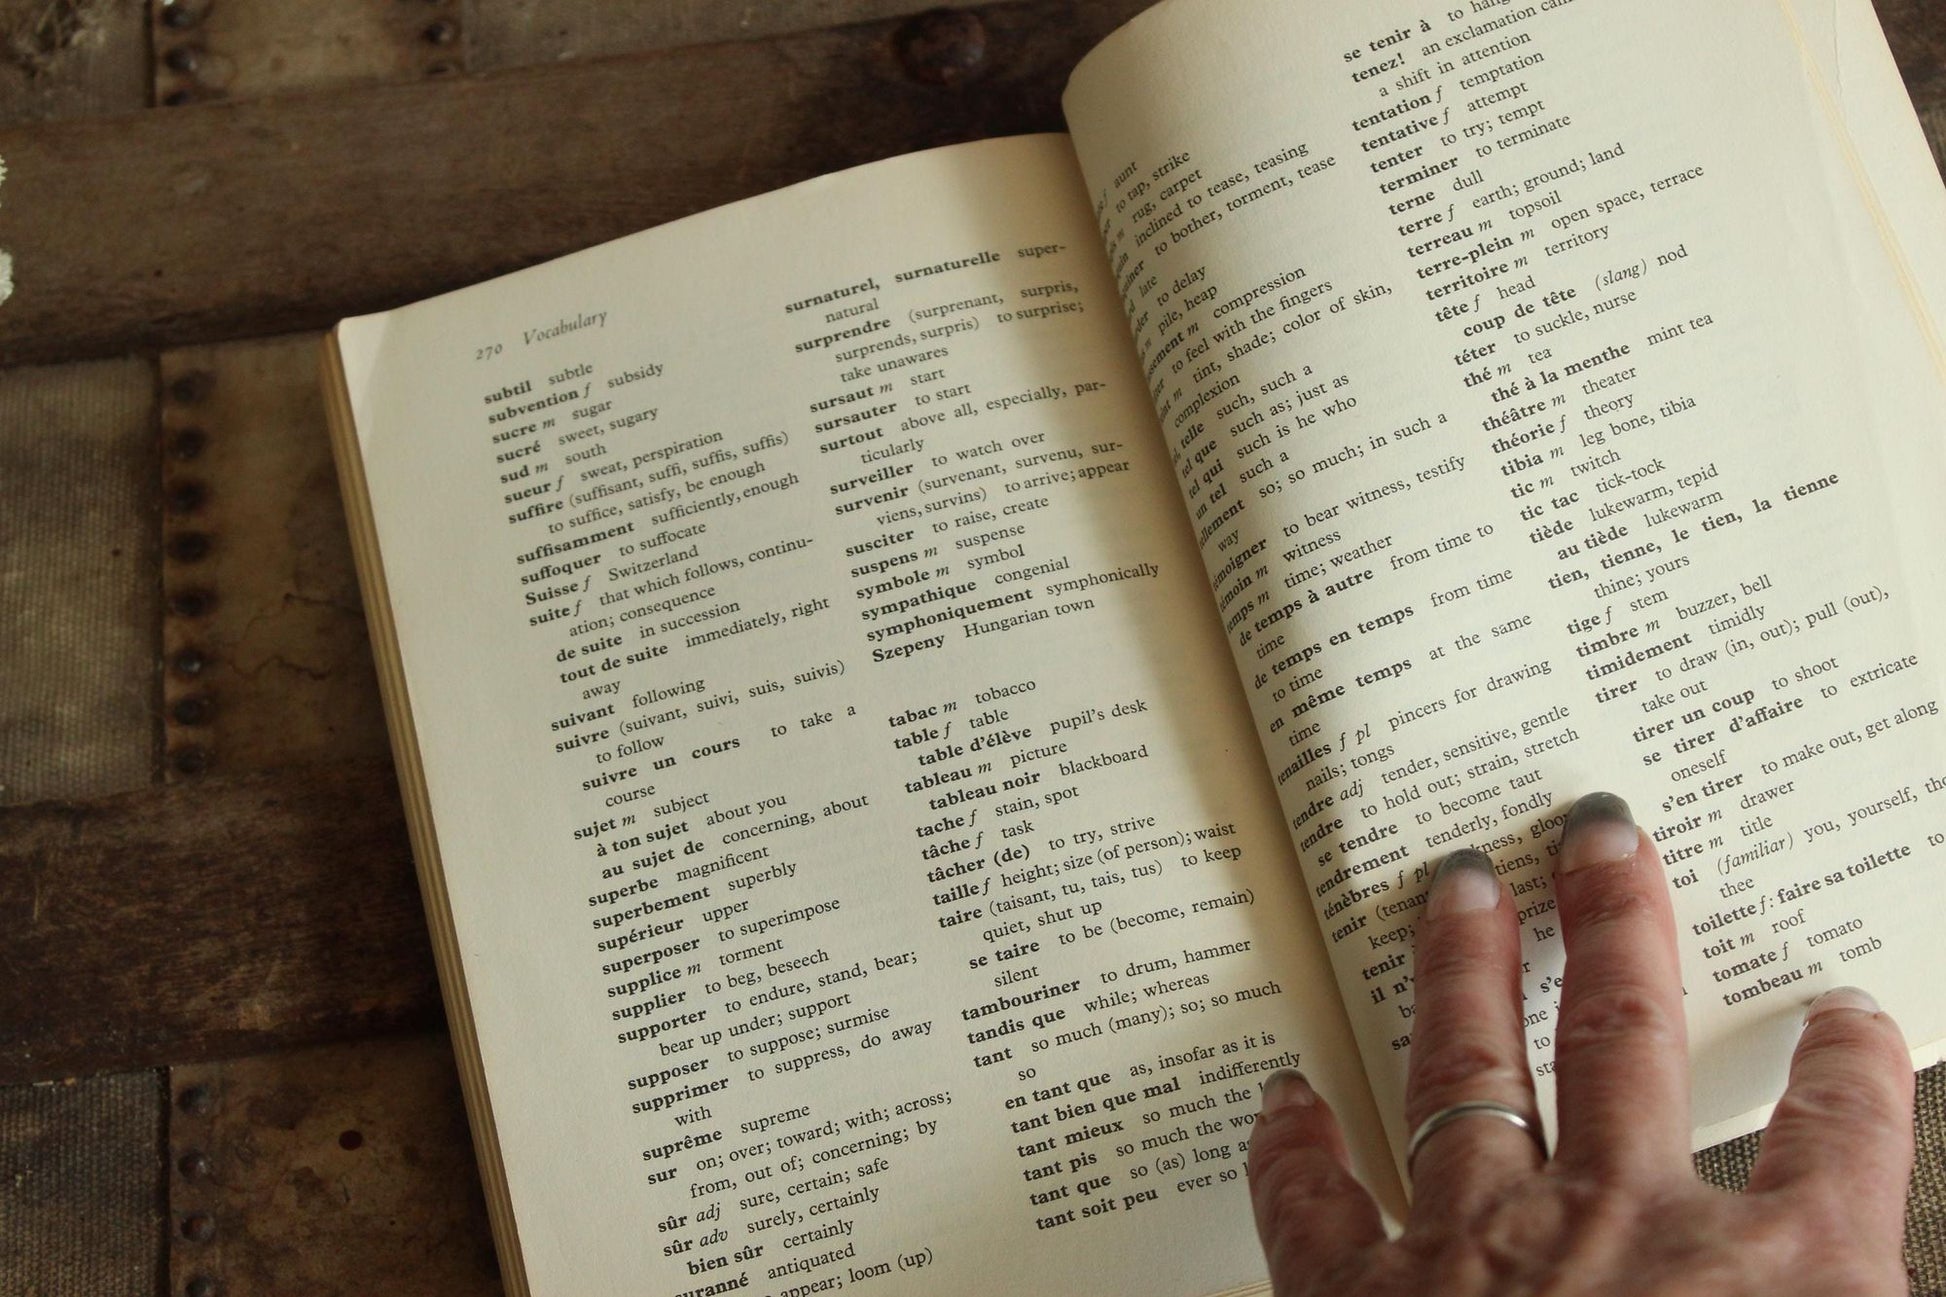 270 Vocabulary
subtil subtle
subvention f subsidy
sucre m sugar
sucré sweet, sugary
sud m south
sueur f sweat, perspiration
suffire (suffisant, suffi, suffis, suffis)
to suffice, satisfy, be enough
suffisamment sufficiently, enough
suffoquer to suffocate
Suisse f Switzerland
suite f that which follows, continu-
ation; consequence
de suite in succession
tout de suite immediately, right
away
suivant following
suivre (suivant, suivi, suis, suivis)
to follow
suivre un cours to take a
course
sujet m subject
à ton sujet about you
au sujet de concerning, about
superbe magnificent
superbement superbly
supérieur upper
superposer to superimpose
supplice m torment
supplier to beg, beseech
supporter to endure, stand, bear;
bear up under; support
supposer to suppose; surmise
supprimer to suppress, do away
with
suprême supreme
sur on; over; toward; with; across;
from, out of; concerning; by
sûr adj sure, certain; safe
sûr adv surely, certainly
bien sûr certainly
antiquated
appear; loom (up)
surnaturel, surnaturelle super-
natural
surprendre (surprenant, surpris,
surprends, surpris) to surprise;
take unawares
sursaut m start
sursauter to start
surtout above all, especially, par-
ticularly
surveiller to watch over
survenir (survenant, survenu, sur-
viens, survins) to arrive; appear
susciter to raise, create
suspens m suspense
symbole m symbol
sympathique congenial
symphoniquement symphonically
Szepeny Hungarian town
tabac m tobacco
table f table
table d'élève pupil's desk
tableau m picture
tableau noir blackboard
tache f stain, spot
tâche f task
tâcher (de) to try, strive
taille f height; size (of person); waist
taire (taisant, tu, tais, tus) to keep
quiet, shut up
se taire to be (become, remain)
silent
tambouriner to drum, hammer
tandis que while; whereas
tant so much (many); so; so much
so
en tant que as, insofar as it is
tant bien que mal indifferently
tant mieux so much the
tant pis so much the
tant que so (as) long
tant soit peu ever so
aunt
to tap, strike
rug, carpet
inclined to tease, teasing
to bother, torment, tease
late
to delay
pile, heap
m compression
to feel with the fingers
m tint, shade; color of skin,
complexion
telle such, such a
tel que such as; just as
tel qui such is he who
un tel such a
so; so much; in such a
way
to bear witness, testify
m witness
m time; weather
de temps à autre from time to
time
de temps en temps from time
to time
en même temps at the same
time
tenailles f pl pincers for drawing
nails; tongs
tendre adj tender, sensitive, gentle
tendre to hold out; strain, stretch
se tendre to become taut
tendrement tenderly, fondly
ténèbres f
tenir
keep;
tenir
il
se tenir à to
tenez! an exclamation
a shift in attention
tentation f temptation
tentative f attempt
tenter to try; tempt
terminer to terminate
terne dull
terre f earth; ground; land
terreau m topsoil
terre-plein m open space, terrace
territoire m territory
tête f head
coup de tête (slang) nod
téter to suckle, nurse
thé m tea
thé à la menthe mint tea
théâtre m theater
théorie f theory
tibia m leg bone, tibia
tic m twitch
tic tac tick-tock
tiède lukewarm, tepid
au tiède lukewarm
tien, tienne, le tien, la tienne
thine; yours
tige f stem
timbre m buzzer, bell
timidement timidly
tirer to draw (in, out); pull (out),
take out
tirer un coup to shoot
se tirer d'affaire to extricate
oneself
s'en tirer to make out, get along
tiroir m drawer
titre m title
toi (familiar) you, yourself,
thee
toilette f: faire sa toilette to
toit m roof
tomate f tomato
tombeau m tomb